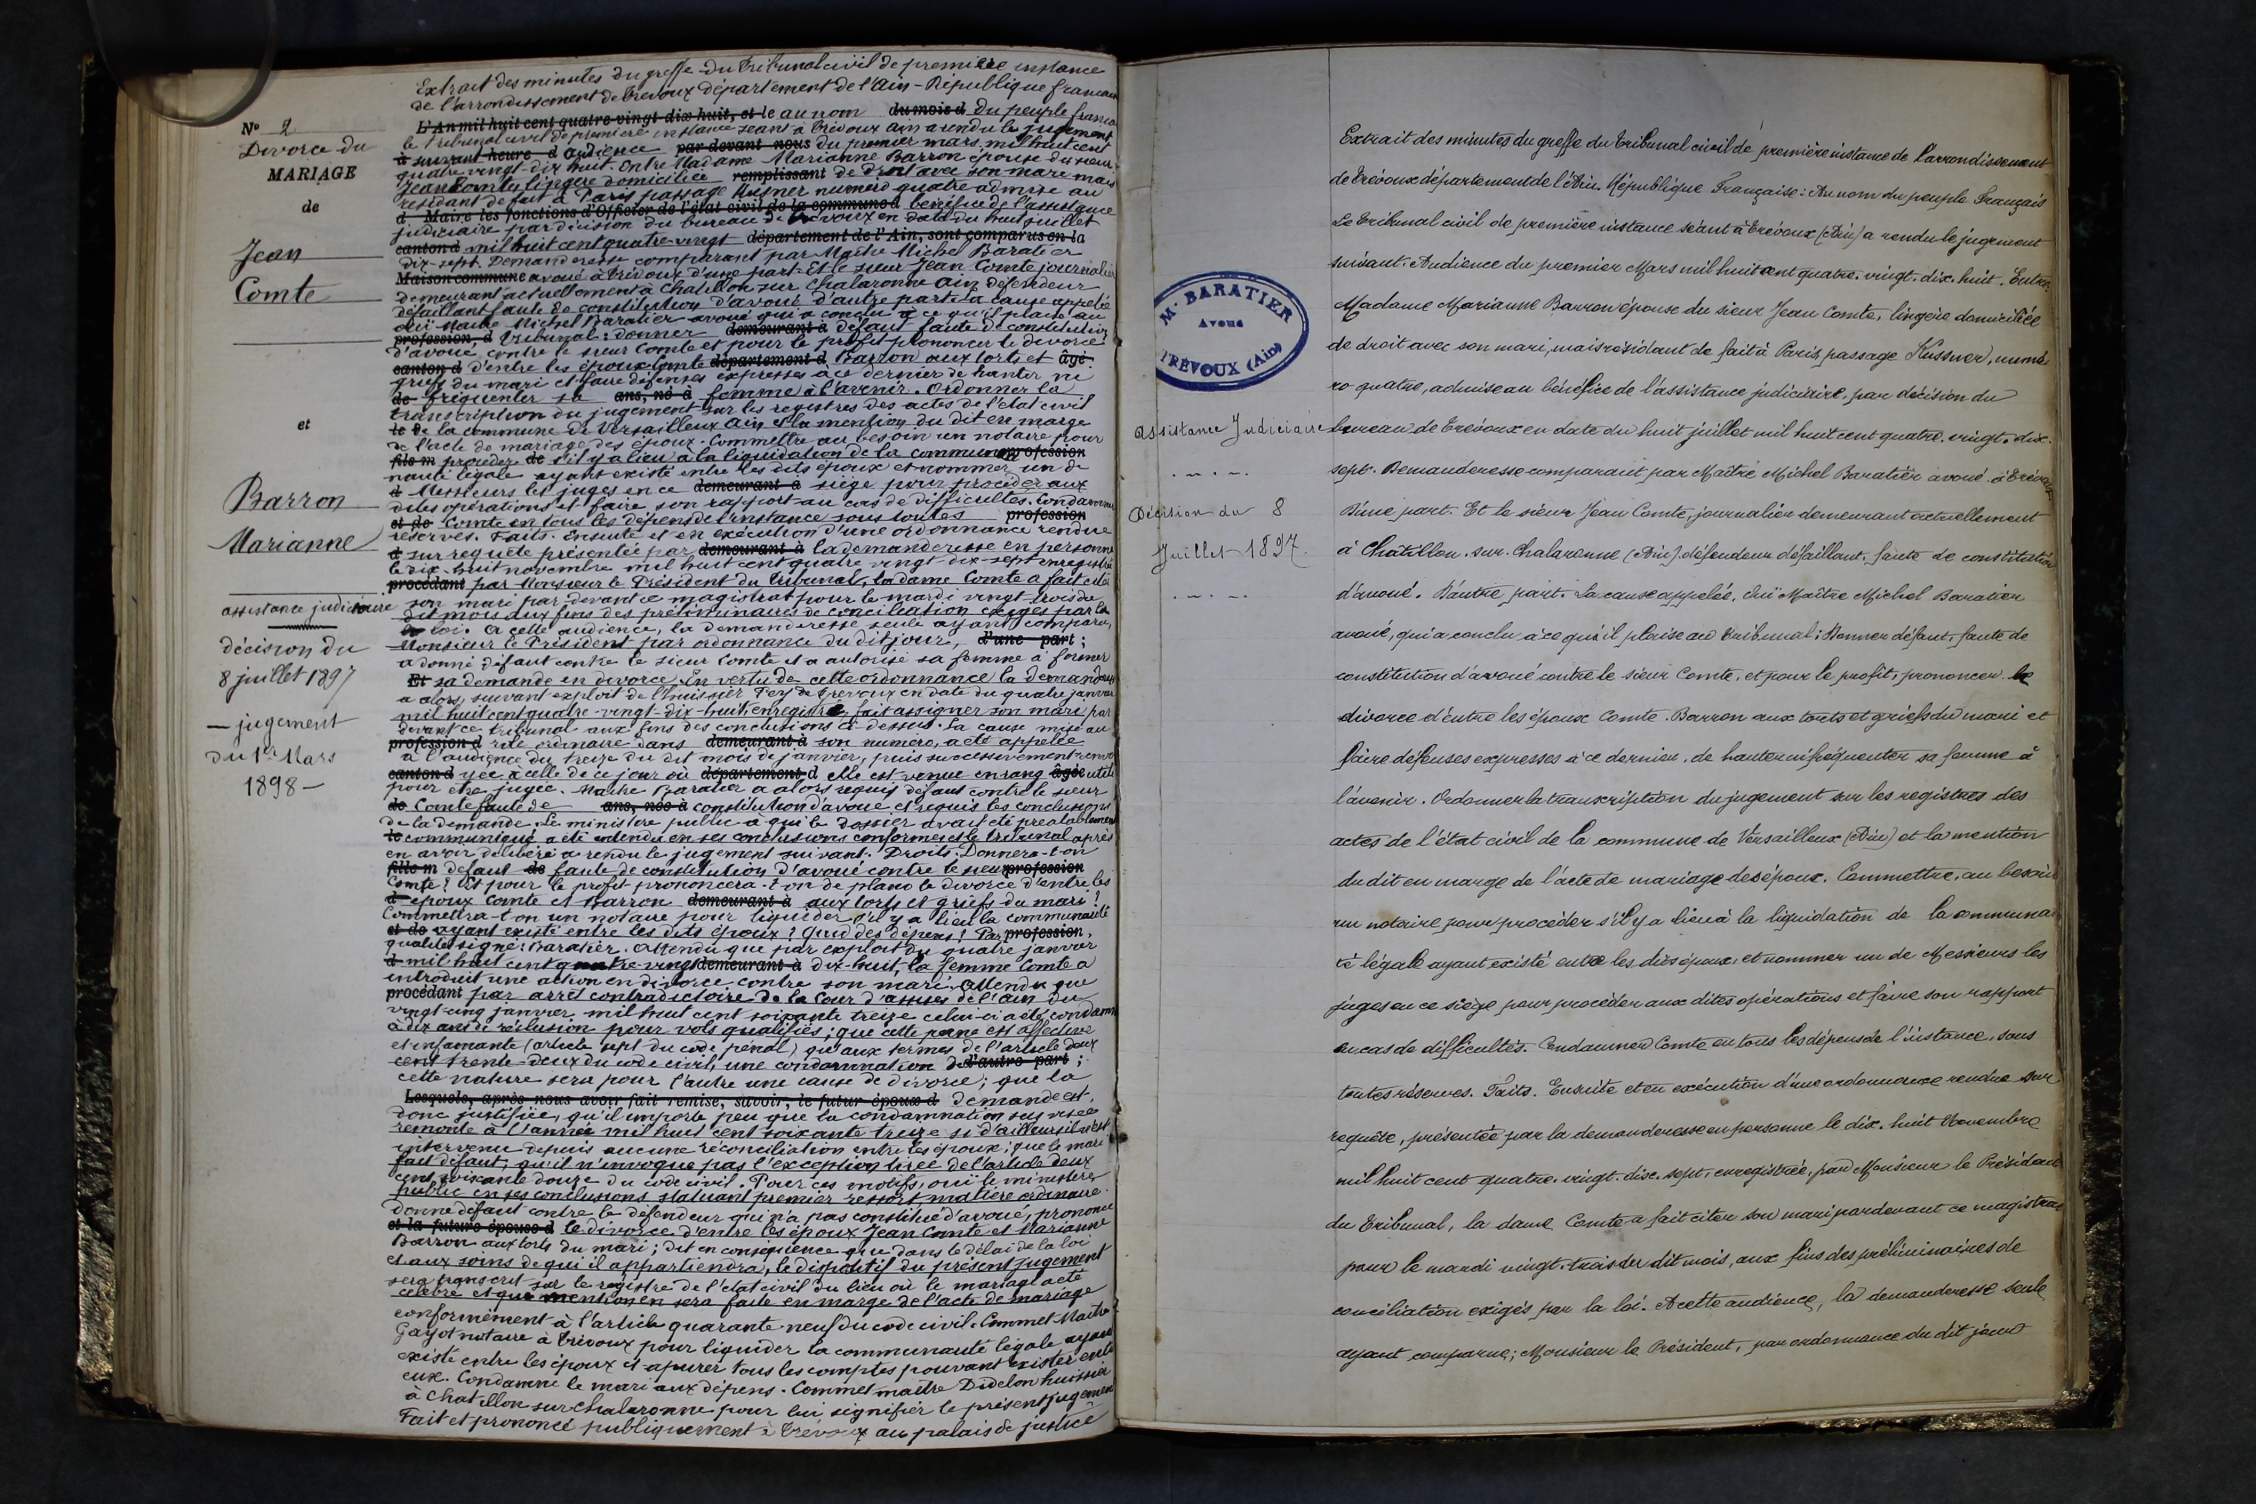 Nº 2
Divorce du
MARIAGE
de
Jean
Comte
et
Barron
Marianne
assistance judiciaire
décision du
8 juillet 1897
— jugement
du 1er Mars
1898 —
Extrait des minutes du greffe du tribunal civil de première instance
de l'arrondissement de Trévoux département de l'Ain - République française
L'An mil huit cent quatre-vingt-dix huit, et le au nom du mois d du peuple français
le tribunal civil de première instance séant à Trévoux Ain a rendu le jugement
à suivant heure d audience par-devant nous du premier mars mil huit cent
quatre-vingt-dix huit. Entre Madame Marianne Barron épouse du sieur
Jean Comte lingère domiciliée remplissant de droit avec son mari mais
résidant de fait à Paris passage Kusner numéro quatre admise au
d Maire les fonctions d'Officier de l'état civil de la commune d bénéfice de l'assistance
judiciaire par décision du bureau de Trévoux en date du huit juillet
canton d mil huit cent quatre-vingt département de l'Ain, sont comparus en la
dix-sept. Demanderesse comparant par Maître Michel Baratier
Maison commune avoué à Trévoux d'une part - Et le sieur Jean Comte journalier
demeurant actuellement à Chatillon sur Chalaronne Ain défendeur
défaillant faute de constitution d'avoué d'autre part. La cause appelée
ouï Maître Michel Baratier avoué qui a conclu à ce qu'il plaise au
profession, d tribunal : donner demeurant à défaut faute de constitution
d'avoué contre le sieur Comte et pour le profit prononcer le divorce
canton d d'entre les époux Comte département d Barron aux torts et âgé
griefs du mari et faire défenses expresses à ce dernier de hanter ni
de fréquenter sa ans, né à femme à l'avenir. Ordonner la
transcription du jugement sur les registres des actes de l'état civil
le de la commune de Versailleux Ain et la mention du dit en marge
de l'acte de mariage des époux. Commettre au besoin un notaire pour
fils m procéder de s'il y a lieu à la liquidation de la commu profession
nauté légale ayant existé entre les dits époux et nommer un de
d Messieurs les juges en ce demeurant à siège pour procéder aux
dites opérations et faire son rapport au cas de difficultés. Condamner
et de Comte en tous les dépens de l'instance sous toutes profession
réserves. Faits. Ensuite et en exécution d'une ordonnance rendue
d sur requête présentée par demeurant à la demanderesse en personne
le dix-huit novembre mil huit cent quatre vingt-dix-sept enregistrée
procédant par Monsieur le Président du tribunal, la dame Comte a fait citer
son mari par-devant ce magistrat pour le mardi vingt-trois du
dit mois aux fins des préliminaires de conciliation exigés par la
loi. A cette audience, la demanderesse seule ayant comparu,
Monsieur le Président par ordonnance du dit jour, d'une part ;
a donné défaut contre le sieur Comte et a autorisé sa femme à former
Et sa demande en divorce. En vertu de cette ordonnance la demanderesse
a alors, suivant exploit de l'huissier Fey de Trévoux en date du quatre janvier
mil huit cent quatre-vingt-dix-huit enregistré, fait assigner son mari par
devant ce tribunal aux fins des conclusions ci-dessus. La cause mise au
profession d rôle ordinaire dans demeurant à son numéro, a été appelée
à l'audience du treize du dit mois de janvier, puis successivement renvo
canton d yée à celle de ce jour où département d elle est venue en rang âgée utile
pour être jugée. Maître Baratier a alors requis défaut contre le sieur
de Comte faute de ans, née à constitution d'avoué et requis les conclusions
de la demande. Le ministère public à qui le dossier avait été préalablement
le communiqué a été entendu en ses conclusions conformes et le tribunal après
en avoir délibéré a rendu le jugement suivant. Droits : Donnera-t-on
fille m défaut de faute de constitution d'avoué contre le sieur profession
Comte ? Et pour le profit prononcera-t-on de plano le divorce d'entre les
d époux Comte et Barron demeurant à aux torts et griefs du mari !
Commettra-t-on un notaire pour liquider s'il y a lieu la communauté
et de ayant existé entre les dits époux ? Quid des dépens ! Par profession,
qualités signé : Baratier. Attendu que par exploit du quatre janvier
d mil huit cent quatre-vingt demeurant à dix-huit, la femme Comte a
introduit une action en divorce contre son mari. Attendu que
procédant par arrêt contradictoire de la Cour d'assises de l'Ain du
vingt-cinq janvier mil huit cent soixante treize celui-ci a été condamné
à dix ans de réclusion pour vols qualifiés ; que cette peine est afflictive
et infamante (article sept du code pénal) qu'aux termes de l'article deux
cent trente-deux du code civil, une condamnation de d'autre part ;
cette nature sera pour l'autre une cause de divorce ; que la
Lesquels, après nous avoir fait remise, savoir, le futur époux d demande est,
donc justifiée, qu'il importe peu que la condamnation sus visée
remonte à l'année mil huit cent soixante treize si d'ailleurs il n'est
intervenu depuis aucune réconciliation entre les époux ; que le mari
fait défaut, qu'il n'invoque pas l'exception tirée de l'article deux
cent soixante douze du code civil. Pour ces motifs, ouï le ministère
public en ses conclusions statuant premier ressort matière ordinaire
donne défaut contre le défendeur qui n'a pas constitué d'avoué, prononce
et la future épouse d le divorce d'entre les époux Jean Comte et Marianne
Barron aux torts du mari ; dit en conséquence que dans le délai de la loi
et aux soins de qui il appartiendra, le dispositif du présent jugement
sera transcrit sur le registre de l'état civil du lieu où le mariage a été
célébré et que mention en sera faite en marge de l'acte de mariage
conformément à l'article quarante-neuf du code civil. Commet Maître
Gayot notaire à Trévoux pour liquider la communauté légale ayant
existé entre les époux et apurer tous les comptes pouvant exister entre
eux. Condamne le mari aux dépens. Commet maître Didelon huissier
à Chatillon sur Chalaronne pour lui signifier le présent jugement
Fait et prononcé publiquement à Trévoux au palais de justice
Me BARATIER
Avoué
TRÉVOUX (Ain)
Assistance Judiciaire
Décision du 8
Juillet 1897.
Extrait des minutes du greffe du tribunal civil de première instance de l'arrondissement
de Trévoux département de l'Ain. République Française : Au nom du peuple Français
Le tribunal civil de première instance séant à Trévoux (Ain) a rendu le jugement
suivant. Audience du premier Mars mil huit cent quatre-vingt-dix-huit. Entre
Madame Marianne Barron épouse du sieur Jean Comte, lingère domiciliée
de droit avec son mari, mais résidant de fait à Paris, passage Kussner, numé
ro quatre, admise au bénéfice de l'assistance judiciaire, par décision du
bureau de Trévoux en date du huit juillet mil huit cent quatre-vingt-dix-
sept. Demanderesse comparant par Maître Michel Baratier avoué à Trévoux
D'une part. Et le sieur Jean Comte, journalier demeurant actuellement
à Châtillon-sur-Chalaronne (Ain), défendeur défaillant, faute de constitution
d'avoué. D'autre part. La cause appelée, Ouï Maître Michel Baratier
avoué, qui a conclu à ce qu'il plaise au tribunal ; Donner défaut, faute de
constitution d'avoué contre le sieur Comte, et pour le profit, prononcer le
divorce d'entre les époux Comte-Barron aux torts et griefs du mari et
faire défenses expresses à ce dernier, de hanter ni fréquenter sa femme à
l'avenir. Ordonner la transcription du jugement sur les registres des
actes de l'état civil de la commune de Versailleux (Ain) et la mention
du dit en marge de l'acte de mariage des époux. Commettre, au besoin
un notaire pour procéder s'il y a lieu à la liquidation de la communau
té légale ayant existé entre les dits époux, et nommer un de Messieurs les
juges en ce siège pour procéder aux dites opérations et faire son rapport
en cas de difficultés. Condamner Comte en tous les dépens de l'instance, sous
toutes réserves. Faits. Ensuite et en exécution d'une ordonnance rendue sur
requête, présentée par la demanderesse en personne le dix-huit Novembre
mil huit cent quatre-vingt-dix-sept, enregistrée, par Monsieur le Président
du Tribunal, la dame Comte a fait citer son mari pardevant ce magistrat
pour le mardi vingt-trois du dit mois, aux fins des préliminaires de
conciliation exigés par la loi. A cette audience, la demanderesse seule
ayant comparue ; Monsieur le Président, par ordonnance du dit jour